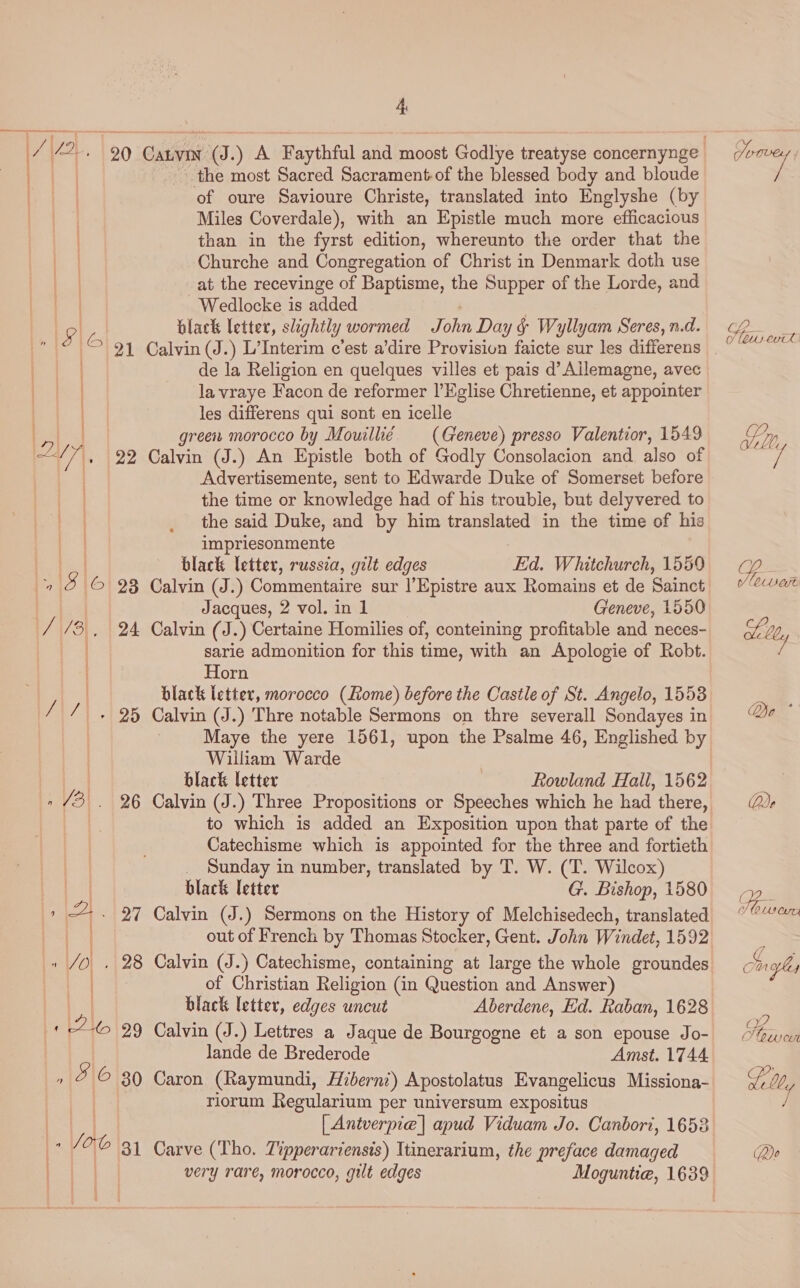 4
1 12 . 20 Calvin (J.) A Faythful and moost Godlye treatyse concernynge
the most Sacred Sacrament of the blessed body and bloude
of oure Savioure Christe, translated into Englyshe (by
Miles Coverdale), with an Epistle much more efficacious
than in the fyrst edition, whereunto the order that the
Churche and Congregation of Christ in Denmark doth use
at the recevinge of Baptisme, the Supper of the Lorde, and
Wedlocke is added
black letter, slightly wormed John Day & Wyllyam Seres, n.d.
" 8 6 21 Calvin (J.) L'Interim c'est a'dire Provision faicte sur les differens
de la Religion en quelques villes et pais d'Allemagne, avec
la vraye Facon de reformer l'Eglise Chretienne, et appointer
les differens qui sont en icelle
green morocco by Mouillié (Geneve) presso Valentior, 1549
22 Calvin (J.) An Epistle both of Godly Consolacion and also of Lilly
Advertisemente, sent to Edwarde Duke of Somerset before
the time or knowledge had of his trouble, but delyvered to
the said Duke, and by him translated in the time of his
impriesonmente
black letter, russia, gilt edges Ed. Whitchurch, 1550
" 8 6 23 Calvin (J.) Commentaire sur l'Epistre aux Romains et de Sainct
Jacques, 2 vol. in 1 Geneve, 1550
1 13 . 24 Calvin (J.) Certaine Homilies of, conteining profitable and neces- Lilly
sarie admonition for this time, with an Apologie of Robt.
Horn
black letter, morocco (Rome) before the Castle of St. Angelo, 1553
1 1 . 25 Calvin (J.) Thre notable Sermons on thre severall Sondayes in Do
Maye the yere 1561, upon the Psalme 46, Englished by
William Warde
black letter Rowland Hall, 1562
" 13 . 26 Calvin (J.) Three Propositions or Speeches which he had there, Do
to which is added an Exposition upon that parte of the
Catechisme which is appointed for the three and fortieth
Sunday in number, translated by T. W. (T. Wilcox)
black letter G. Bishop, 1580
" 2 . 27 Calvin (J.) Sermons on the History of Melchisedech, translated
out of French by Thomas Stocker, Gent. John Windet, 1592
" 10 . 28 Calvin (J.) Catechisme, containing at large the whole groundes
of Christian Religion (in Question and Answer)
black letter, edges uncut Aberdene, Ed. Raban, 1628
" 2 6 29 Calvin (J.) Lettres a Jaque de Bourgogne et a son epouse Jo-
lande de Brederode Amst. 1744
" 8 6 30 Caron (Raymundi, Hiberni) Apostolatus Evangelicus Missiona- Lilly
riorum Regularium per universum expositus
[Antverpiæ] apud Viduam Jo. Canbori, 1653
" 10 6 31 Carve (Tho. Tipperariensis) Itinerarium, the preface damaged Do
very rare, morocco, gilt edges Moguntiæ, 1639